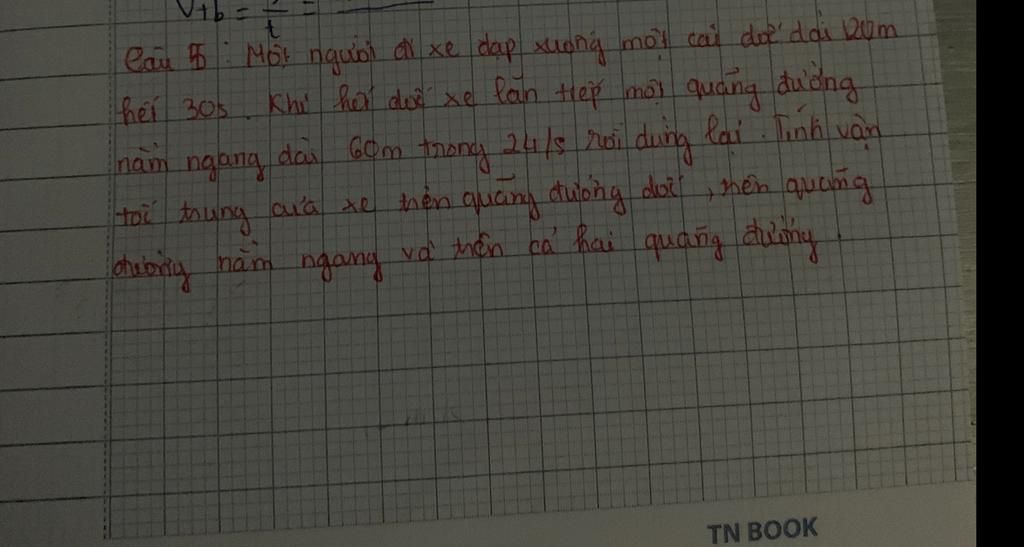 V+b = = 
t
Câu 5 : Một người đi xe đạp xuống một cái dốc dài 120m
hết 30s. Khi hết dốc xe lăn tiếp một quãng đường
nằm ngang dài 60m trong 24/s rồi dừng lại. Tính vận
tốc trung của xe trên quãng đường dốc, trên quãng
đường nằm ngang và trên cả hai quãng đường.
TN BOOK